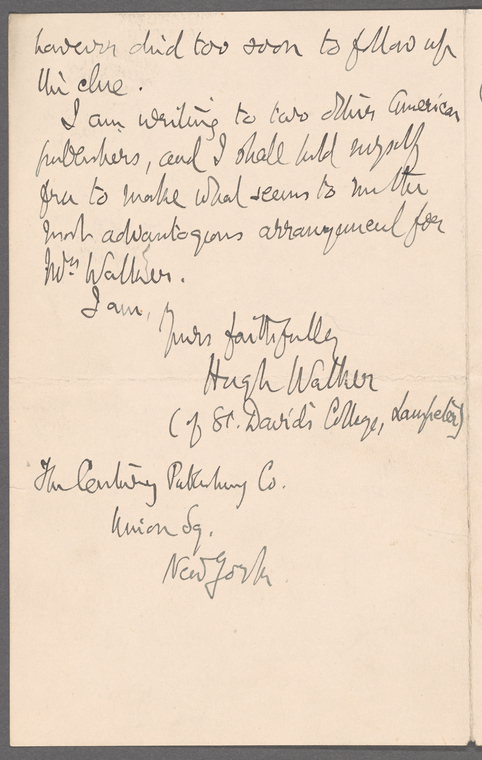 however died too soon to follow up
this clue.
I am writing to two other American
publishers, and I shall hold myself
free to make what seems to me the
most advantageous arrangement for
Mrs Walker.
I am,
Yours faithfully
Hugh Walker
(of St. David's College, Lampeter)
The Century Publishing Co.
Union Sq.
New York